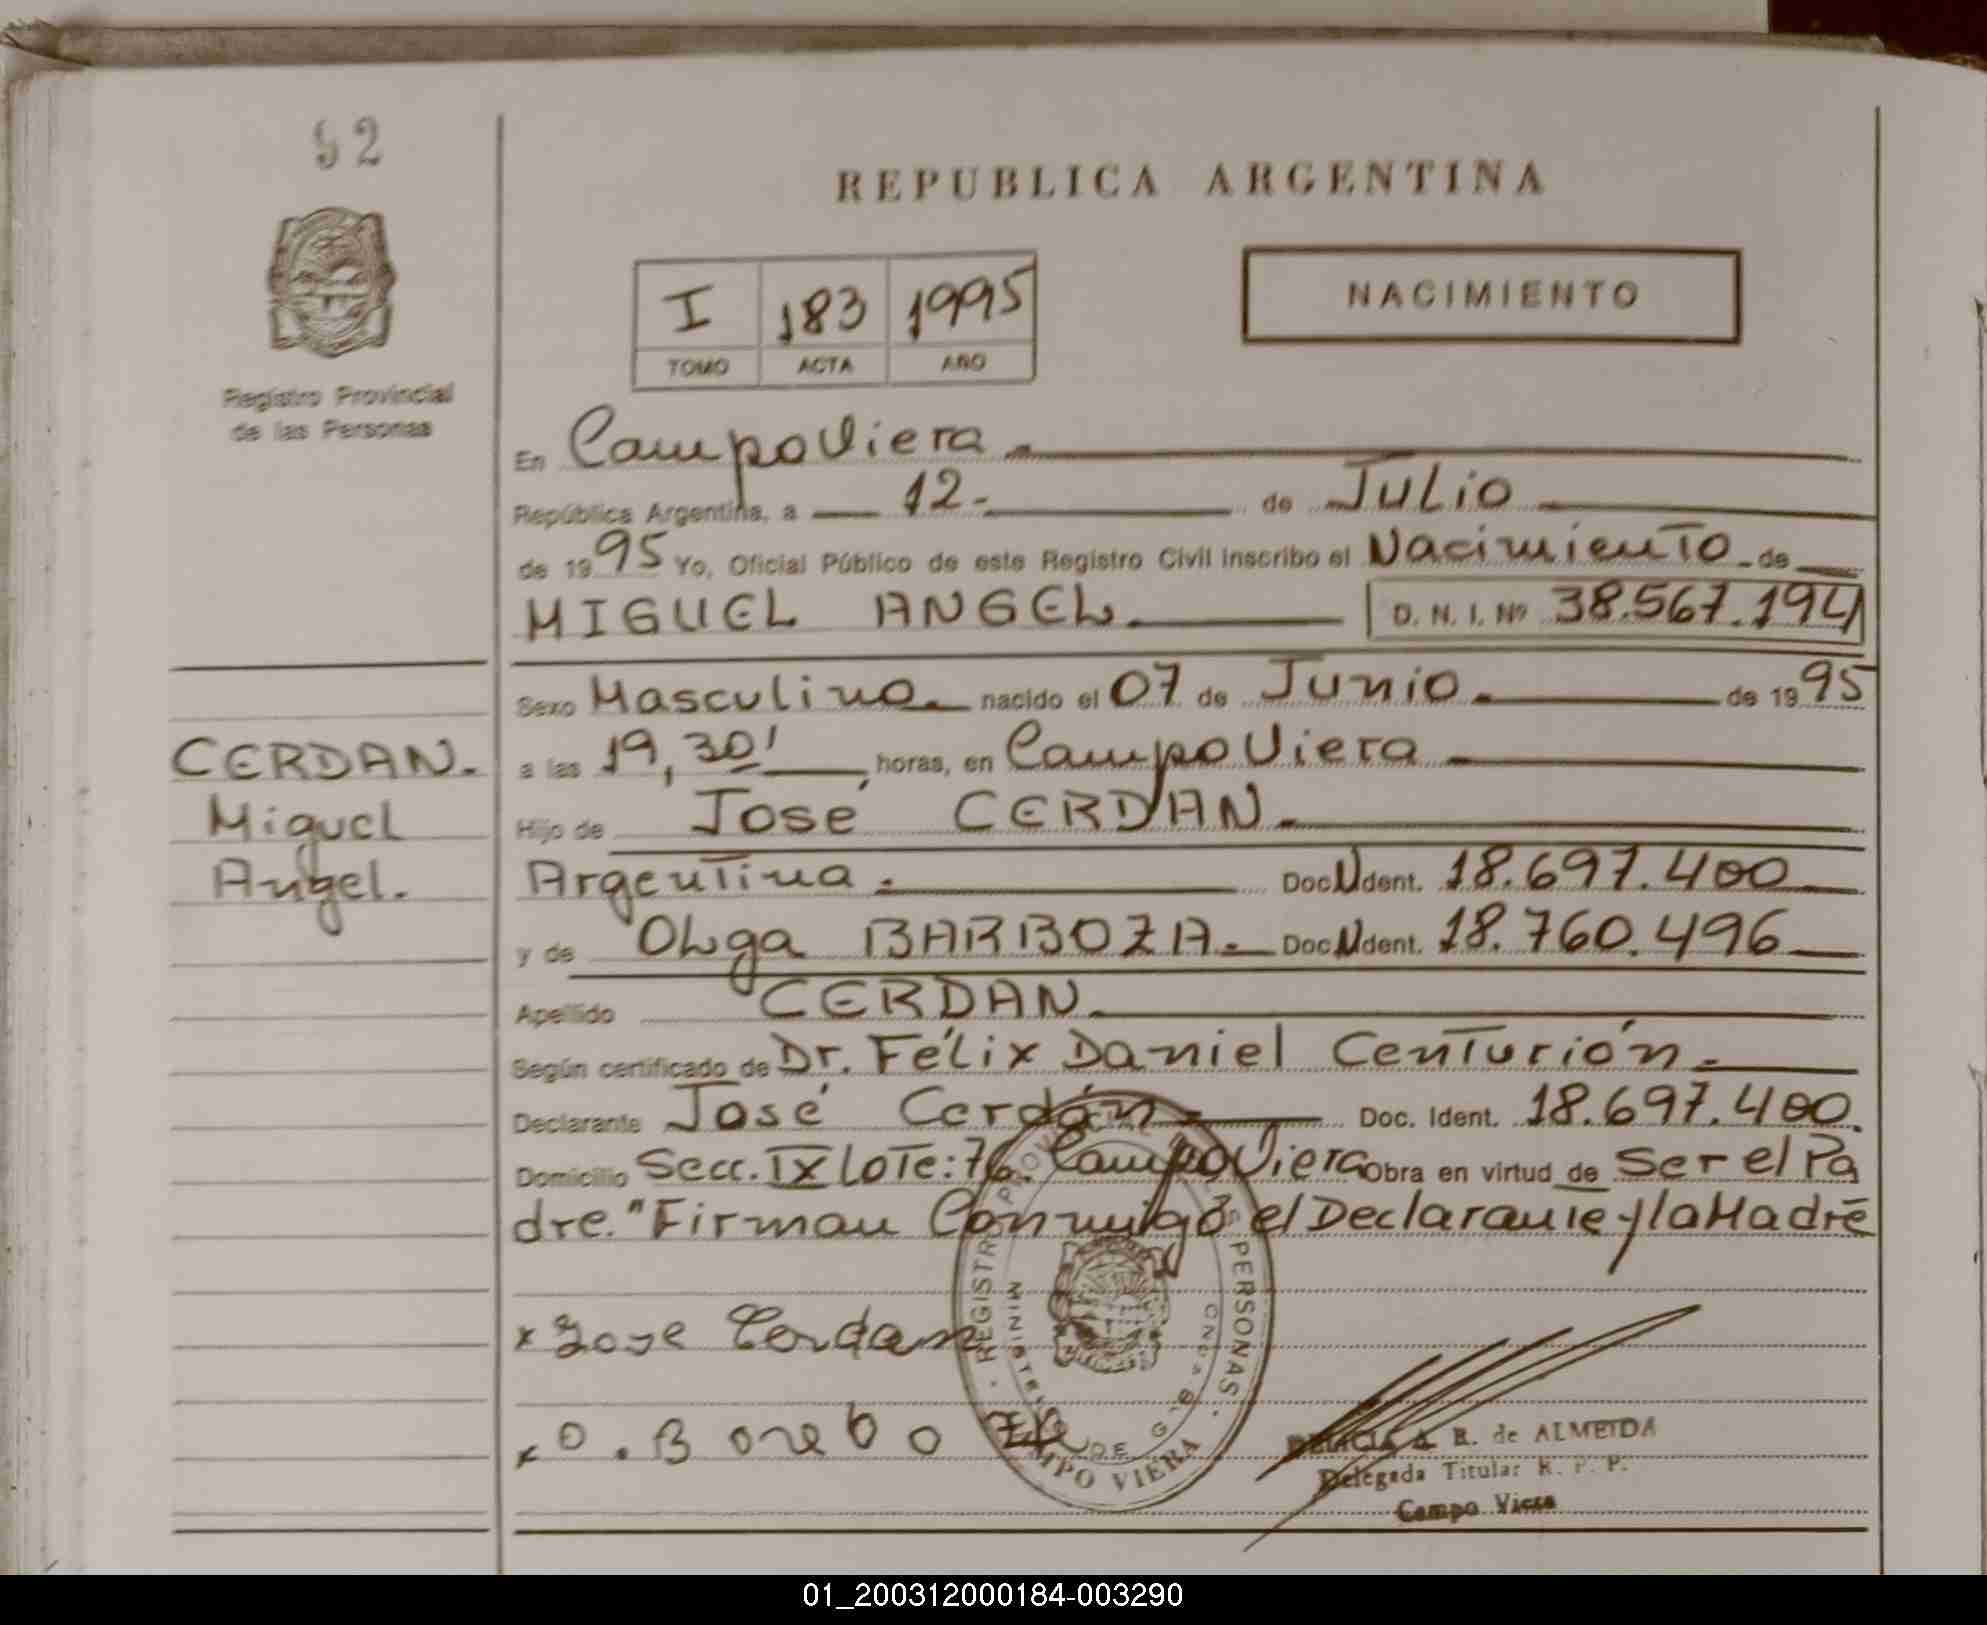 92
REPUBLICA ARGENTINA
I 183 1995
TOMO ACTA AÑO
NACIMIENTO
Registro Provincial
de las Personas
En Campo Viera
República Argentina, a 12- de Julio
de 1995 Yo, Oficial Público de este Registro Civil inscribo el Nacimiento de
MIGUEL ANGEL D. N. I. Nº 38.567.194
Sexo Masculino. nacido el 07 de Junio. de 1995
a las 19,30' horas, en Campo Viera
Hijo de José CERDAN.
Argentina. Doc. Ident. 18.697.400
y de Olga BARBOZA. Doc. Ident. 18.760.496
Apellido CERDAN.
Según certificado de Dr. Félix Daniel Centurión.
Declarante José Cerdán. Doc. Ident. 18.697.400.
Domicilio Secc. IX Lote: 76. Campo Viera Obra en virtud de Ser el Pa
dre. "Firman Conmigo el Declarante y la Madre
CERDAN.
Miguel
Angel.
x Jose Cerdan
x O. Borboza
REGISTRO PROVINCIAL PERSONAS
CAMPO VIERA
R. de ALMEIDA
Delegada Titular R. P. P.
Campo Viera
01_200312000184-003290